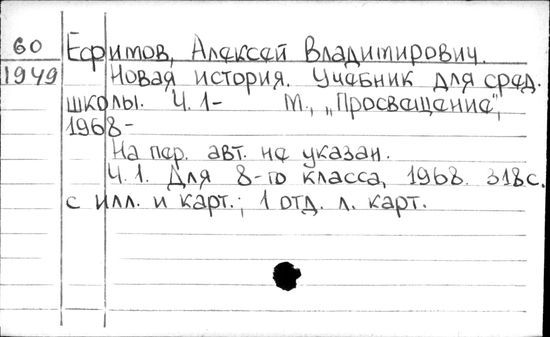 60
1949
Ефимов, Алексей Владимирович.
Новая история. Учебник для сред.
школы. Ч. 1- М., „Просвещение",
1968-
На пер. авт. не указан.
Ч. 1. Для 8-го класса, 1968. 318с.
с илл. и карт.; 1 отд. л. карт.